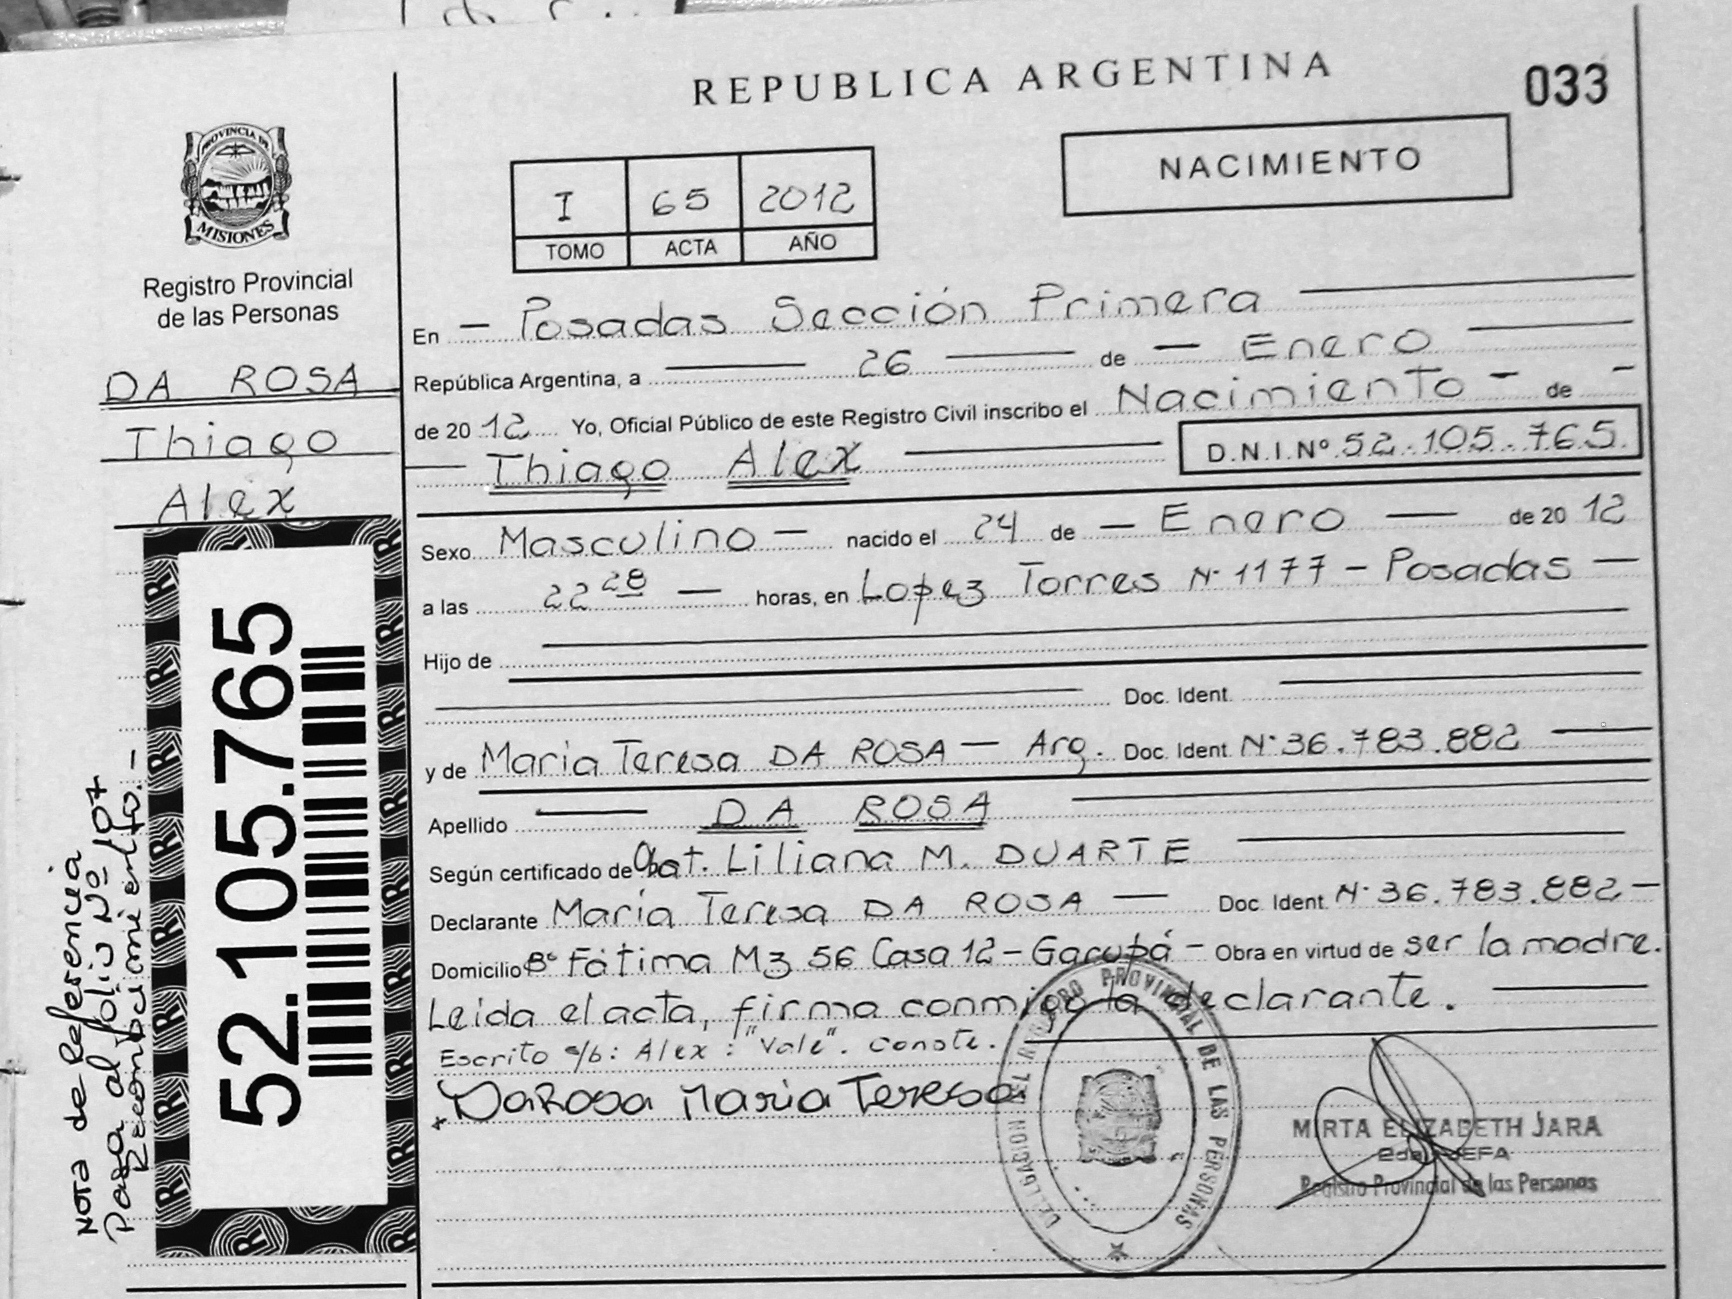 REPUBLICA ARGENTINA
033
PROVINCIA DE
MISIONES
Registro Provincial
de las Personas
DA ROSA
Thiago
Alex
52.105.765
NOTA de Referencia
Pasa al folio Nº 107
Reconocimiento.-
I 65 2012
TOMO ACTA AÑO
NACIMIENTO
En - Posadas Sección Primera
República Argentina, a 26 de - Enero
de 2012 Yo, Oficial Público de este Registro Civil inscribo el Nacimiento - de -
Thiago Alex D.N.I.Nº 52.105.765.
Sexo Masculino - nacido el 24 de - Enero - de 2012
a las 22 28 - horas, en Lopez Torres Nº 1177 - Posadas -
Hijo de
Doc. Ident.
y de Maria Teresa DA ROSA - Arg. Doc. Ident. Nº 36.783.882
Apellido DA ROSA
Según certificado de Obst. Liliana M. DUARTE
Declarante María Teresa DA ROSA - Doc. Ident. Nº 36.783.882 -
Domicilio Bº Fátima Mz 56 Casa 12 - Garupá - Obra en virtud de ser la madre.
Leida el acta, firma conmigo la declarante.
Escrito s/b: Alex: "Vale". Conste.
DaRosa Maria Teresa
DELEGACION DEL REGISTRO PROVINCIAL DE LAS PERSONAS
MIRTA ELIZABETH JARA
2da JEFA
Registro Provincial de las Personas